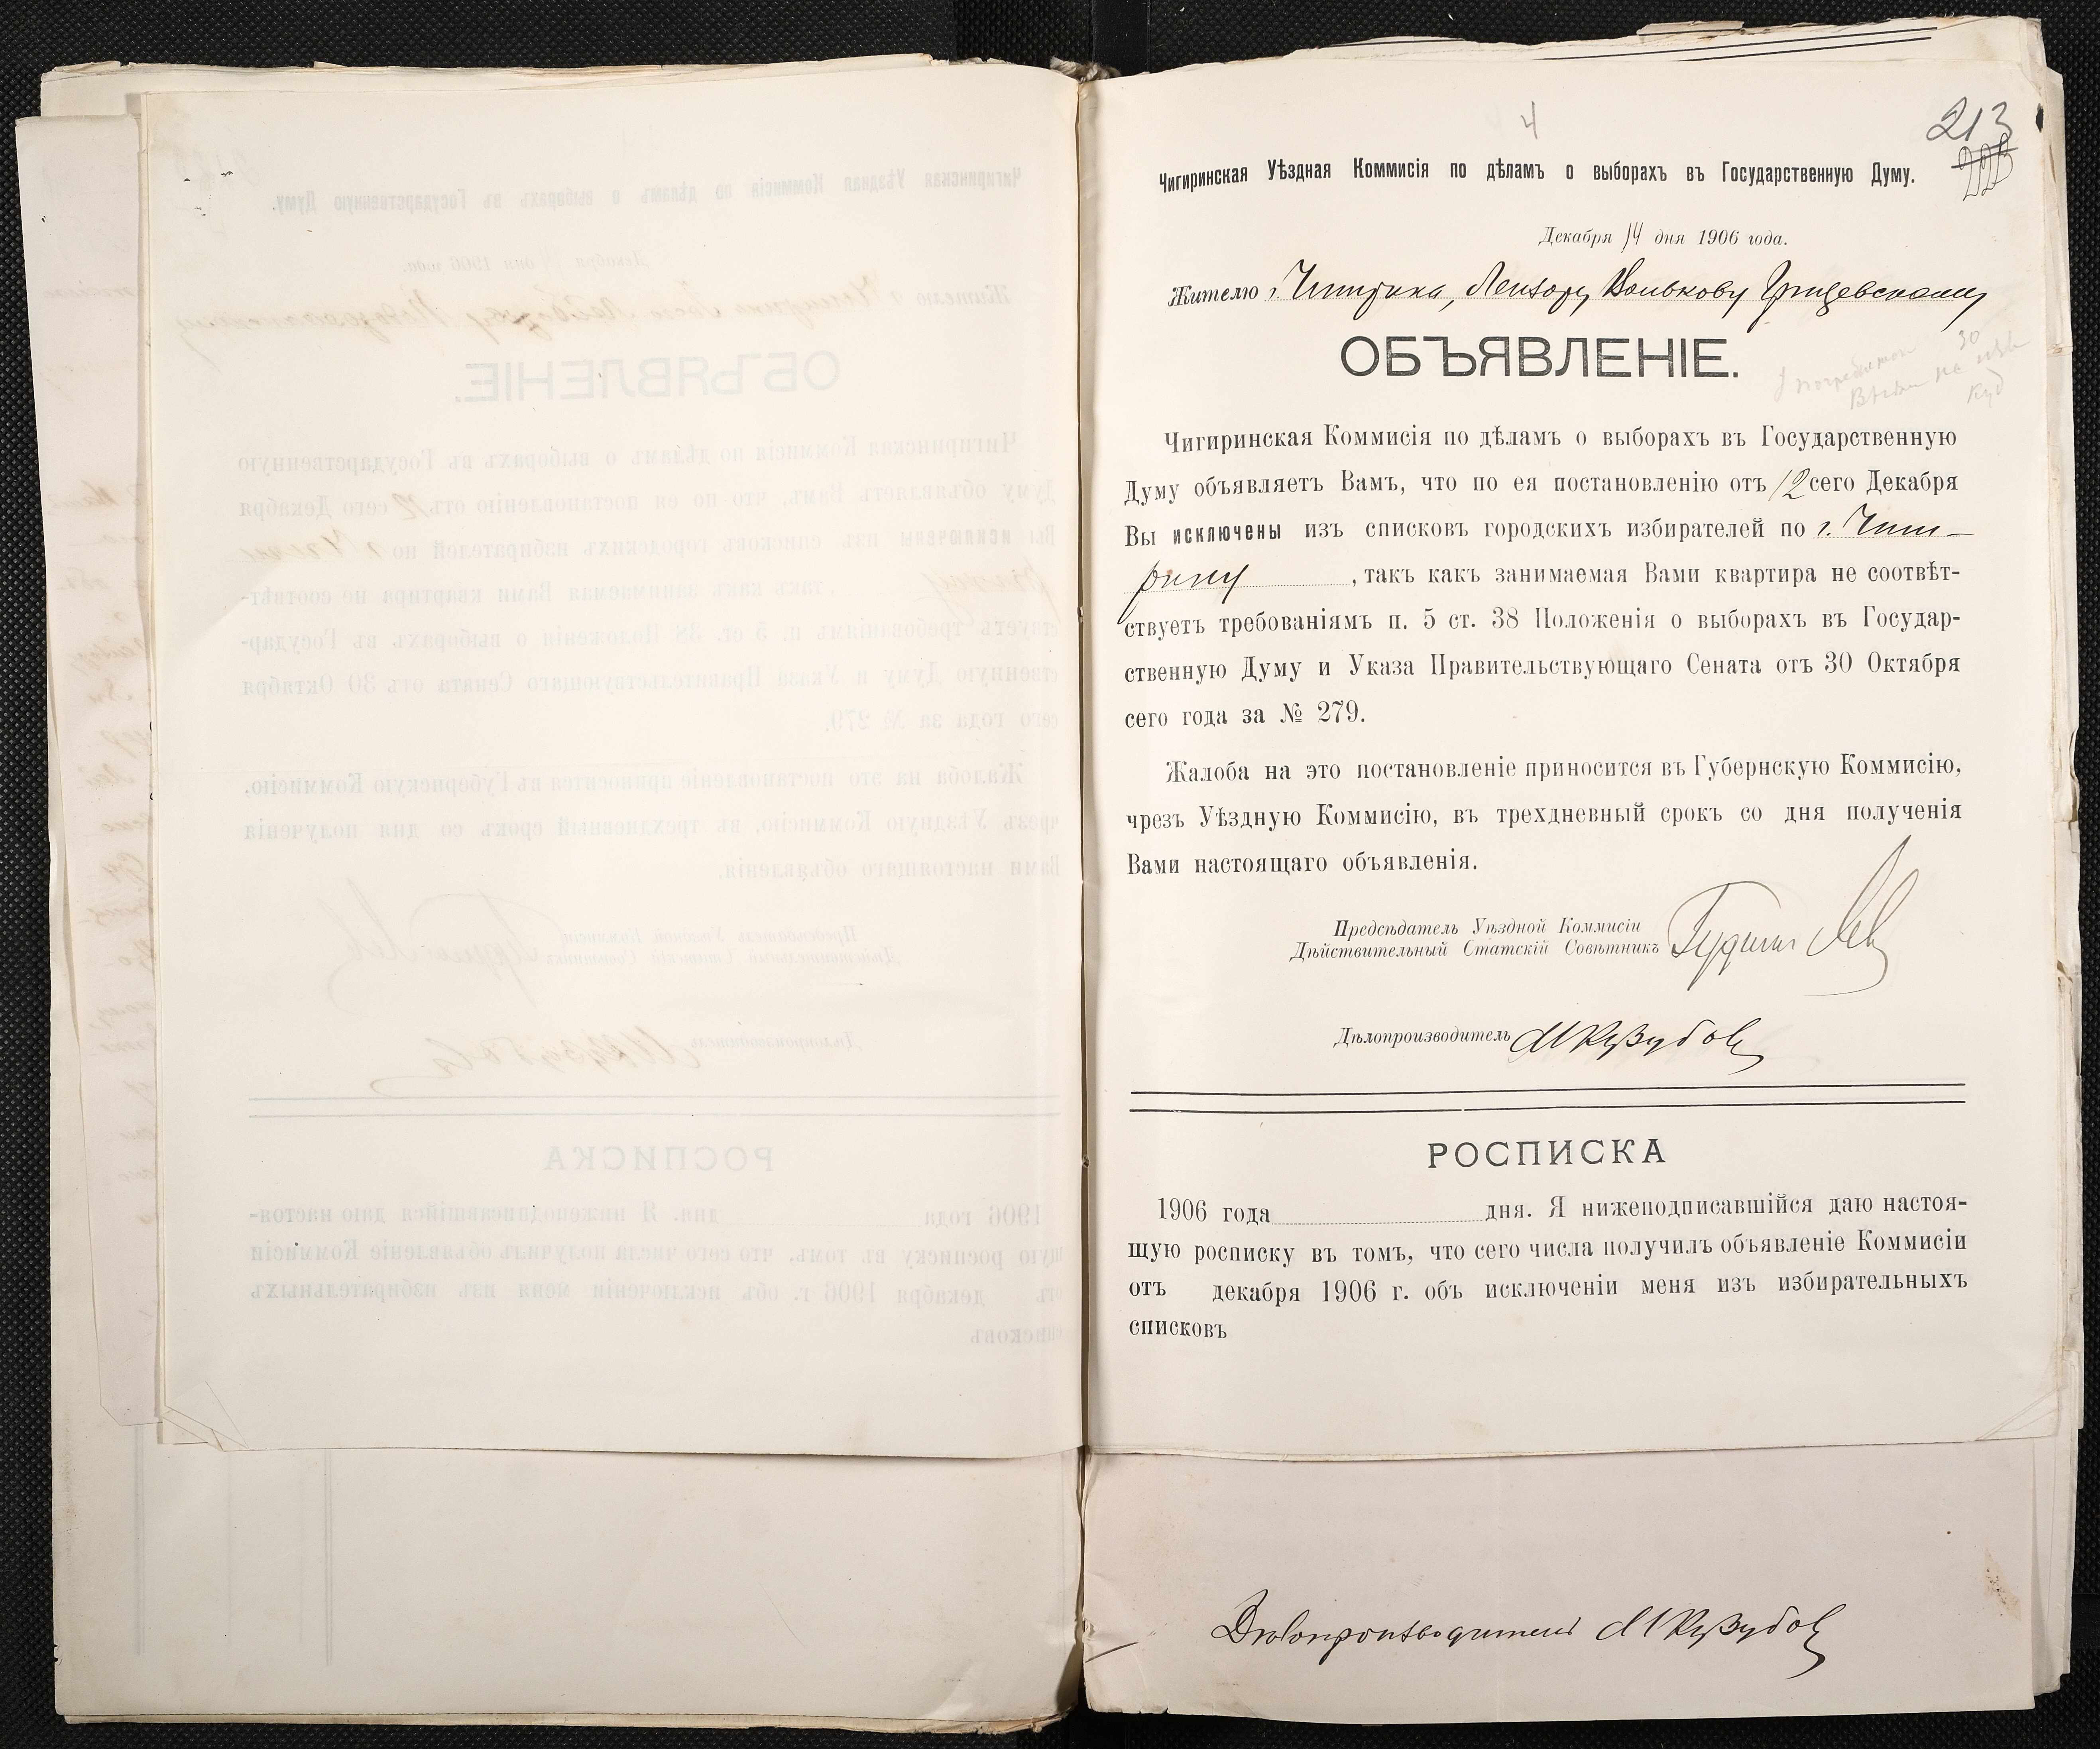 4
213
Чигиринская Уѣздная Коммисія по дѣламъ о выборахъ въ Государственную Думу.
Декабря 14 дня 1906 года.
Жителю г. Чигирина, Лейзору Волькову Грищевскому
ОБЪЯВЛЕНІЕ.
30
Чигиринская Коммисія по дѣламъ о выборахъ въ Государственную
Думу объявляетъ Вамъ, что по ея постановленію отъ 12 сего Декабря
Вы исключены изъ списковъ городскихъ избирателей по г. Чиги-
рину, такъ какъ занимаемая Вами квартира не соотвѣт-
ствуетъ требованіямъ п. 5 ст. 38 Положенія о выборахъ въ Государ-
ственную Думу и Указа Правительствующаго Сената отъ 30 Октября
сего года за № 279.
Жалоба на это постановленіе приносится въ Губернскую Коммисію,
чрезъ Уѣздную Коммисію, въ трехдневный срокъ со дня полученія
Вами настоящаго объявленія.
Предсѣдатель Уѣздной Коммисіи
Дѣйствительный Статскій Совѣтникъ
Дѣлопроизводитель
РОСПИСКА
1906 года дня. Я нижеподписавшійся даю настоя-
щую росписку въ томъ, что сего числа получилъ объявленіе Коммисіи
отъ декабря 1906 г. объ исключеніи меня изъ избирательныхъ
списковъ
Дѣлопроизводитель